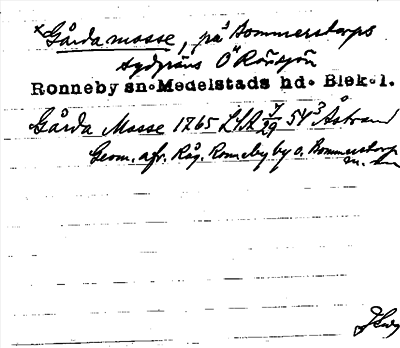 ×Gårda mosse, på Sommerstorps
sydgräns Ö Rörsjön
Ronneby sn. Medelstads hd. Blek. l.
Gårda Mosse 1765 LSA 7/29 54³ Åstrand
Geom. afr. Råg. Ronneby by o. Bommerstorp
m. m